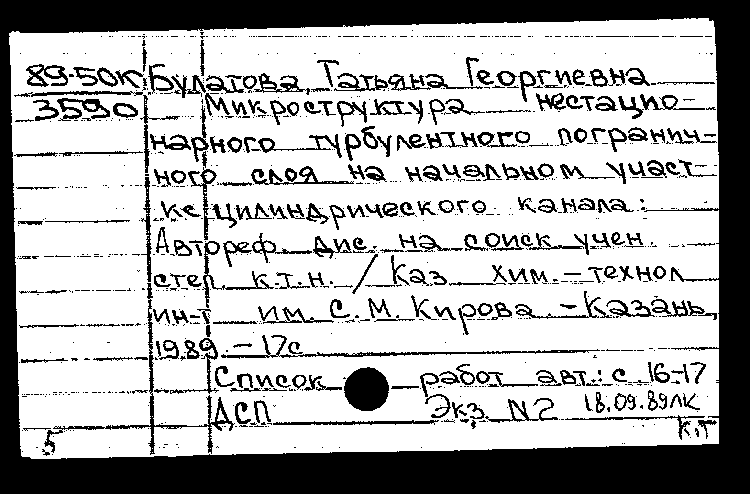 89-50к Булатова, Татьяна Георгиевна
3590 Микроструктура нестацио-
нарного турбулентного погранич-
ного слоя на начальном участ-
ке цилиндрического канала:
Автореф. дис. на соиск учен.
степ. к.т.н. / Каз. хим.-технол
ин-т им. С. М. Кирова. - Казань,
1989. - 17с
Список работ авт.: с. 16-17
ДСП Экз. N2 18.09.89
5 к.т